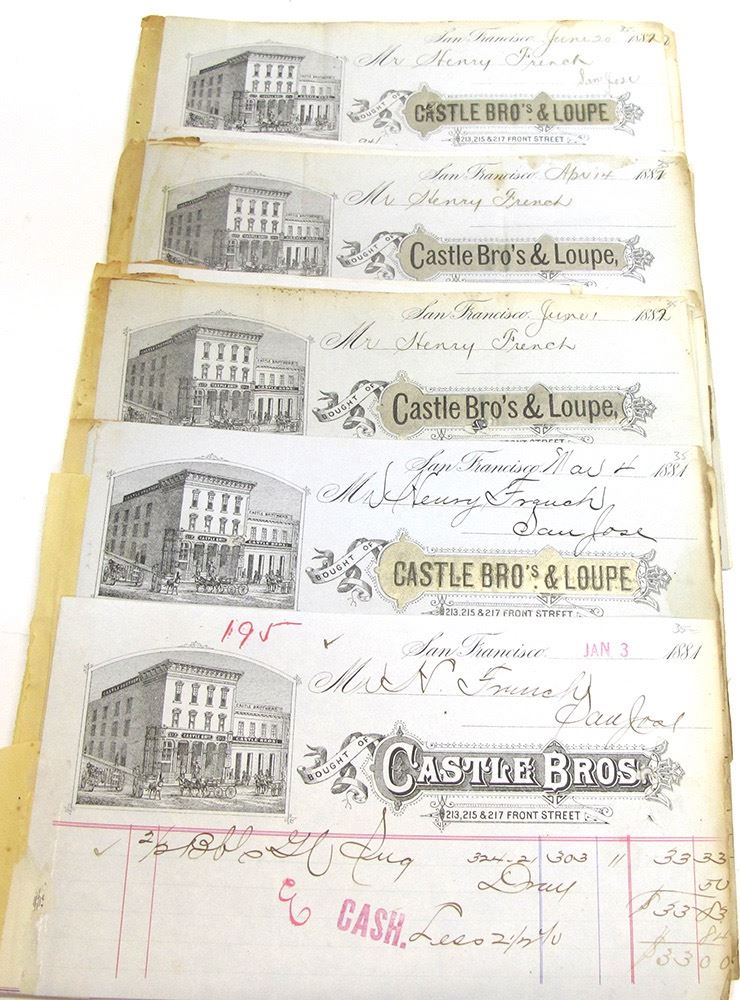 San Francisco, June 20 1882
Mr Henry French
San Jose
BOUGHT OF
CASTLE BRO'S & LOUPE
213, 215 & 217 FRONT STREET
San Francisco, Apr 14 188
Mr Henry French
CASTLE BROS.
BOUGHT OF
Castle Bro's & Loupe,
San Francisco, June 1 1882
Mr Henry French
CASTLE BROTHERS
CASTLE BROS.
BOUGHT OF
Castle Bro's & Loupe,
FRONT STREET
35
San Francisco, 4 1881
Mr Henry French
San Jose
CASTLE BROTHERS
CASTLE BROS.
BOUGHT OF
CASTLE BRO'S & LOUPE
213, 215 & 217 FRONT STREET
195
35
San Francisco JAN 3 1881
Mr H. French
San Jose
CASTLE BROTHERS
CASTLE BROS.
BOUGHT OF
CASTLE BROS.
213, 215 & 217 FRONT STREET
2/2 Bbls 324-21 303 11 33 33
Dray 50
$33 83
CASH. Less 2 1/2 % 84
$33 00